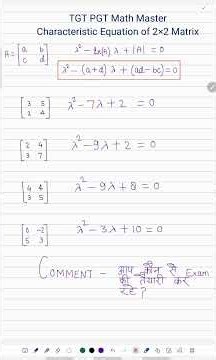 TGT PGT Math Master
Characteristic Equation of 2×2 Matrix
A = [a b
c d] λ² - tr(A) λ + |A| = 0
λ² - (a+d) λ + (ad-bc) = 0
[3 5
2 4] λ² - 7λ + 2 = 0
[2 4
3 7] λ² - 9λ + 2 = 0
[4 4
3 5] λ² - 9λ + 8 = 0
[0 -2
5 3] λ² - 3λ + 10 = 0
COMMENT - आप कौन से Exam
की तैयारी कर
रहे ?